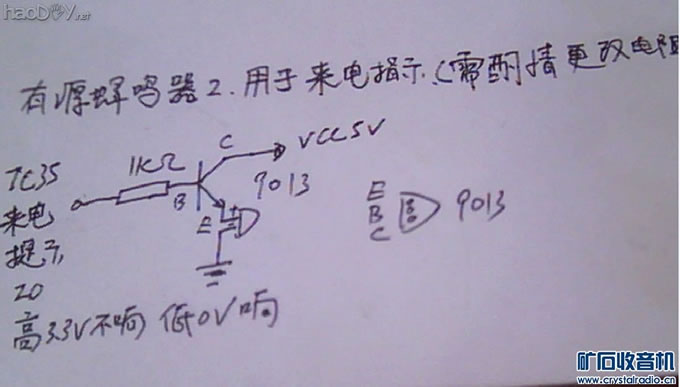 haoDIY.net
有源蜂鸣器2.用于来电指示(需酌情更改电阻
TC35
来电
提示
20
1KΩ
B
C
E
+
VCC5V
9013
E
B
C
9013
高3.3V不响 低0V响
矿石收音机
www.crystalradio.cn